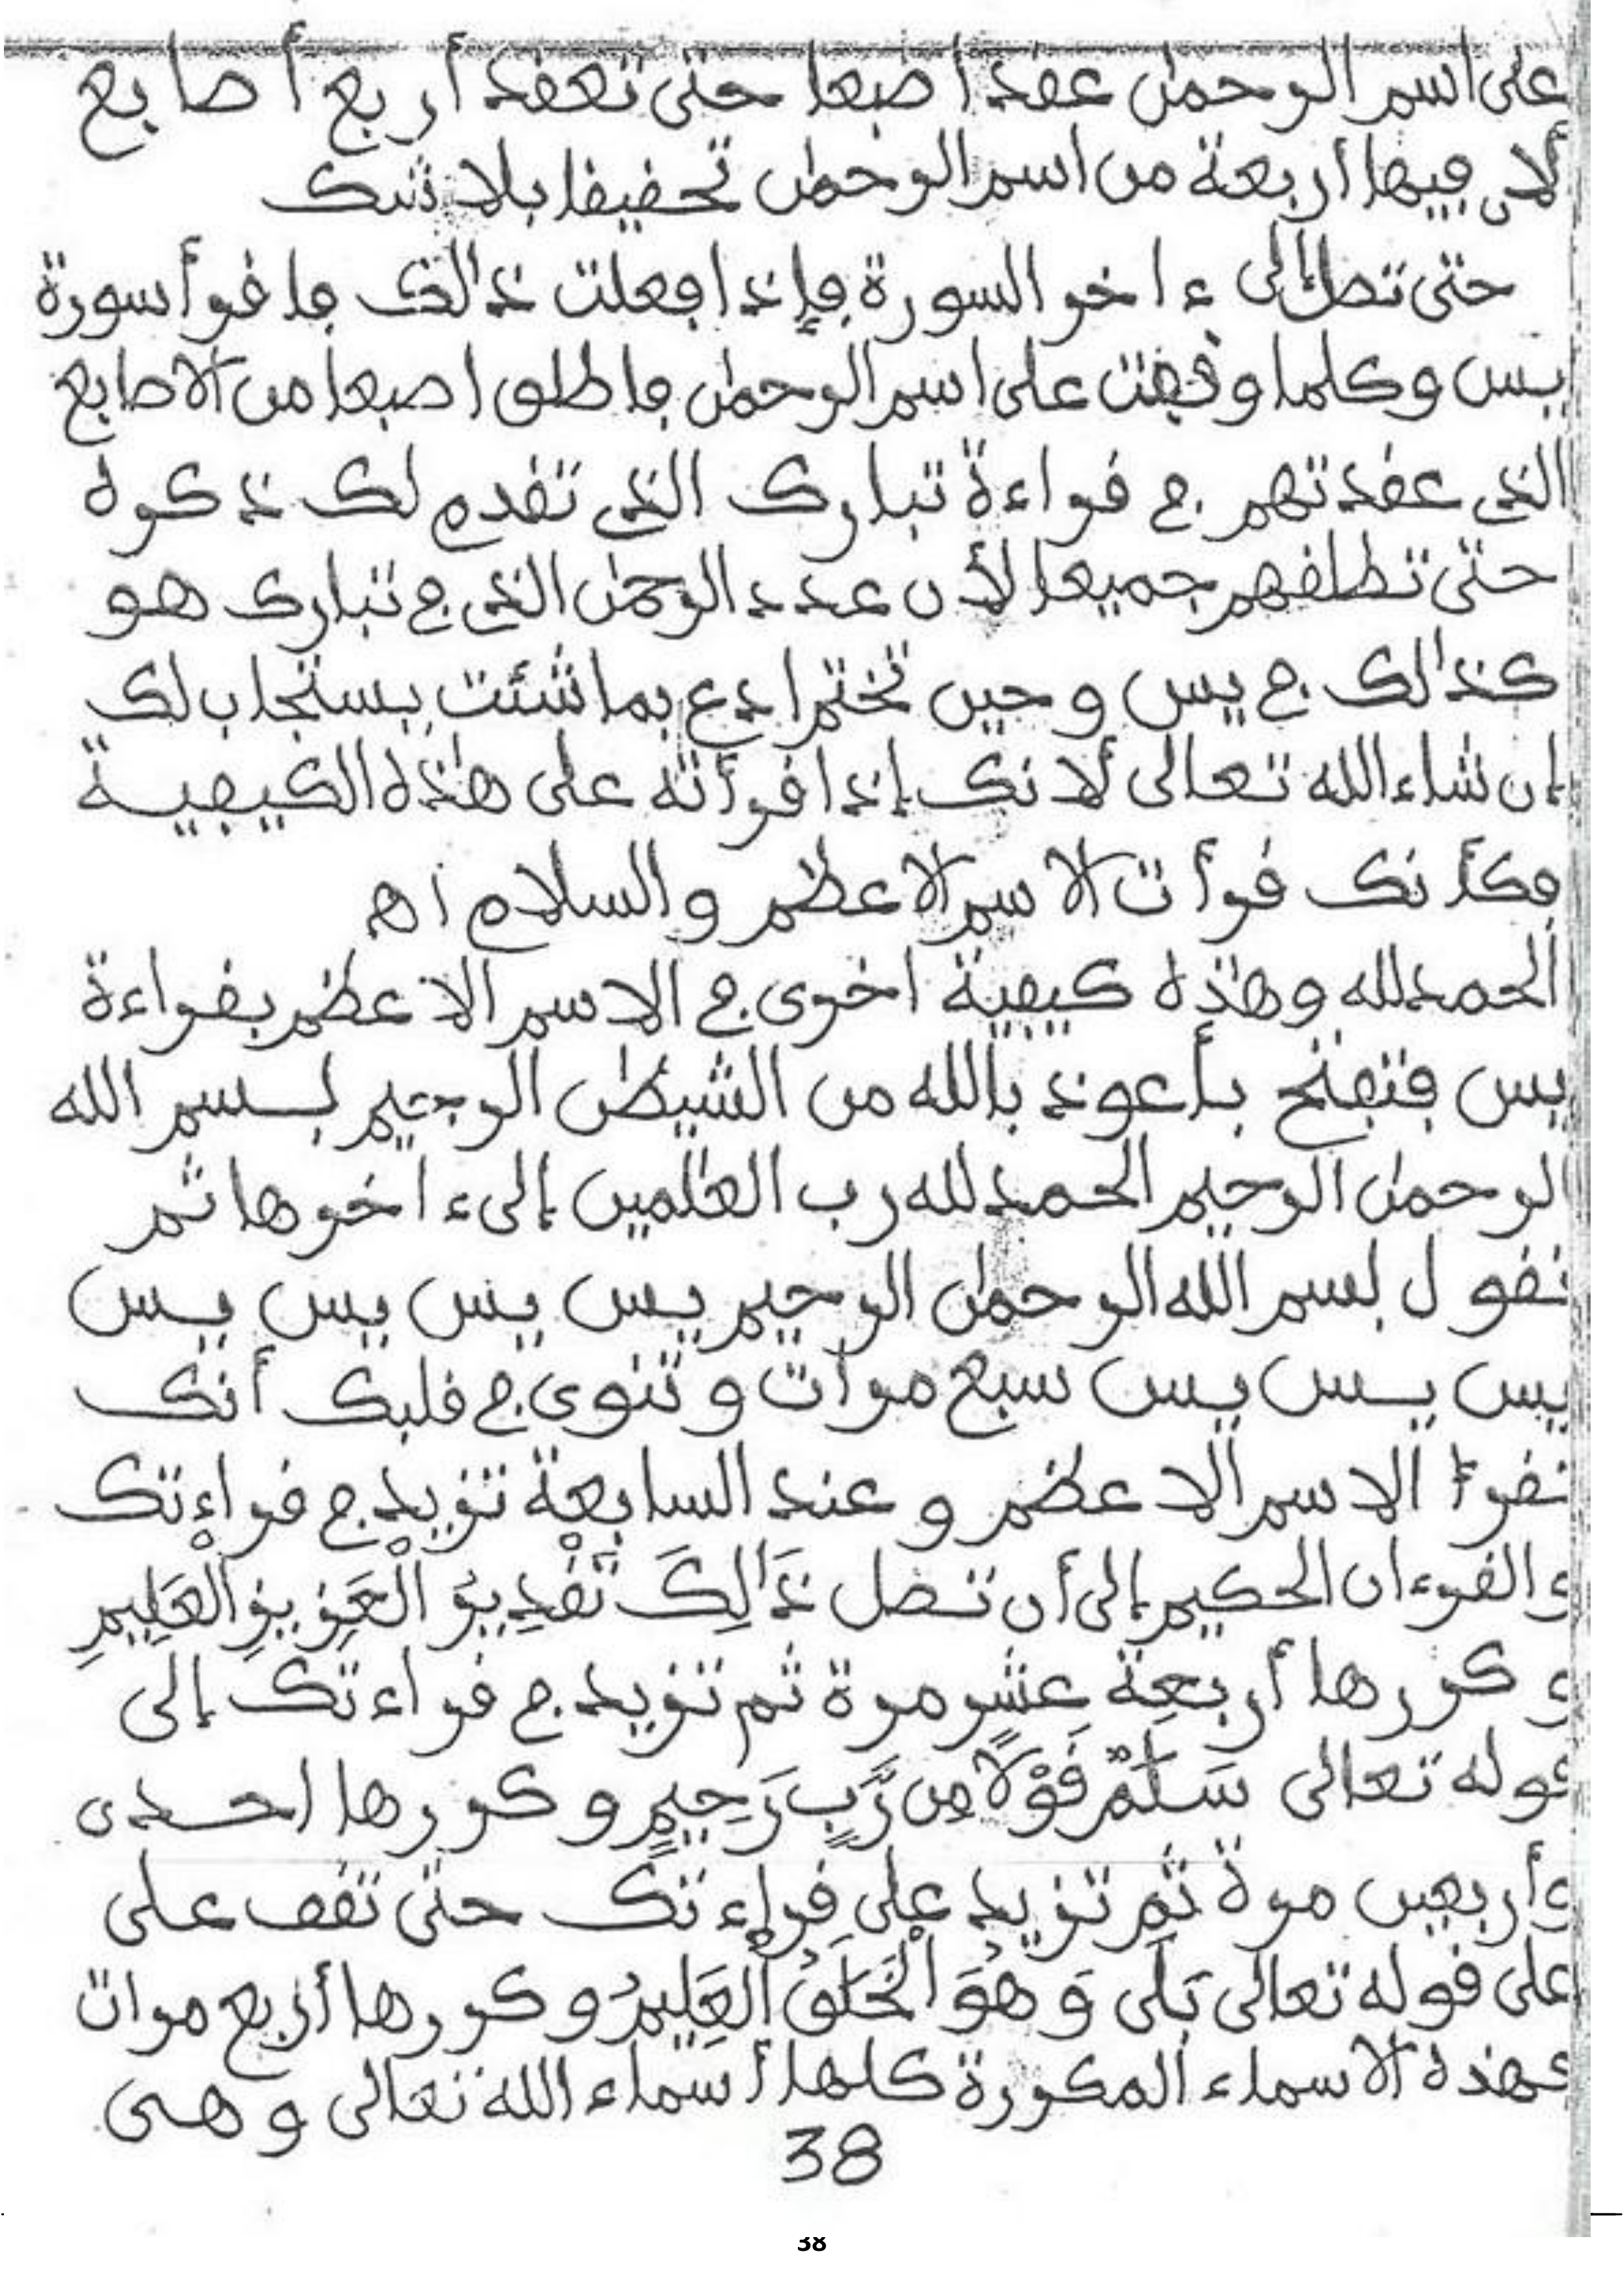 على اسم الرحمٰن عقد اصبعا حتى تعقد أربع أصابع
لأن فيها أربعة من اسم الرحمٰن تحقيقا بلا شك
حتى تصل إلى ءاخر السورة فإذا فعلت ذٰلك فاقرأ سورة
يس وكلما وقفت على اسم الرحمٰن فاطلق اصبعا من الاصابع
الذي عقدتهم في قراءة تبارك الذي تقدم لك ذكره
حتى تطلقهم جميعا لأن عدد الرحمٰن الذي في تبارك هو
كذٰلك في يس وحين تختم ادع بما شئت يستجاب لك
إن شاء الله تعالى لأنك إذا قرأته على هٰذه الكيفية
فكأنك قرأت الاسم الاعظم والسلام اه
الحمد لله وهٰذه كيفية اخرى في الاسم الاعظم بقراءة
يس فتفتح بأعوذ بالله من الشيطٰن الرجيم بسم الله
الرحمٰن الرحيم الحمد لله رب العٰلمين إلى ءاخرها ثم
تقول بسم الله الرحمٰن الرحيم يس يس يس يس
يس يس يس سبع مرات وتنوى في قلبك أنك
تقرأ الاسم الاعظم وعند السابعة تزيد في قراءتك
والقرءان الحكيم إلى أن تصل ذَٰلِكَ تَقْدِيرُ الْعَزِيزِ الْعَلِيمِ
وكررها أربعة عشر مرة ثم تزيد في قراءتك إلى
قوله تعالى سَلَٰمٌ قَوْلًا مِن رَّبٍّ رَحِيمٍ وكررها احدى
وأربعين مرة ثم تزيد على قراءتك حتى تقف على
على قوله تعالى بَلَى وَهُوَ الْخَلَّٰقُ الْعَلِيمُ وكررها أربع مرات
فهذه الاسماء المكررة كلها أسماء الله تعالى وهى
38
38